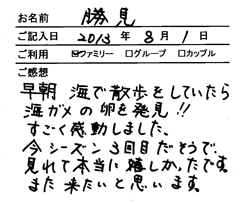 お名前 勝見
ご記入日 2013 年 8 月 1 日
ご利用 ☑ファミリー □グループ □カップル
ご感想
早朝 海で散歩をしていたら
海ガメの卵を発見!!
すごく感動しました、
今シーズン3回目だそうで、
見れて本当に嬉しかったです。
また来たいと思います。